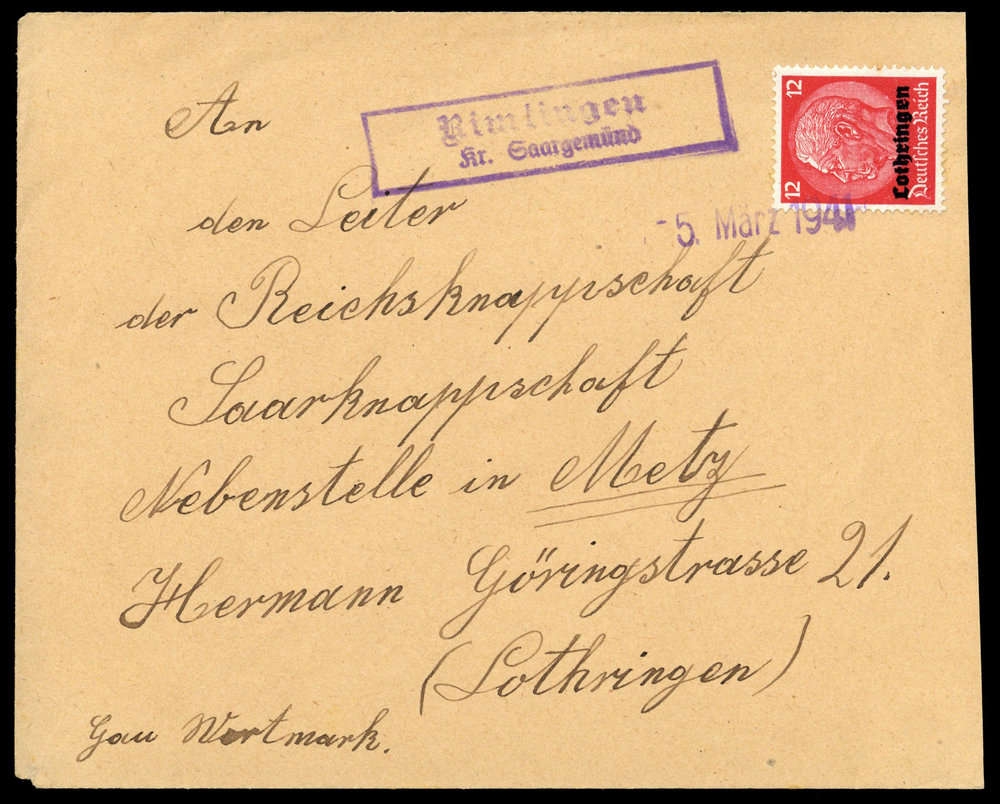 Rimlingen
Kr. Saargemünd
12 12
Lothringen
Deutsches Reich
-5. März 1941
An
den Leiter
der Reichsknappschaft
Saarknappschaft
Nebenstelle in Metz
Hermann Göringstrasse 21.
(Lothringen)
Gau Westmark.